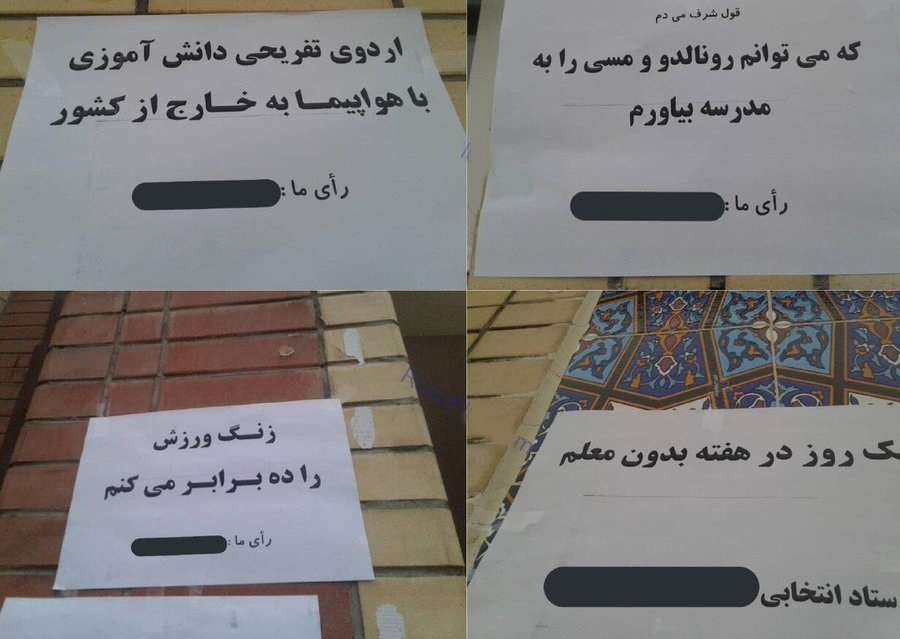 اردوی تفریحی دانش آموزی
با هواپیمـا به خـارج از کشور
رأی ما:
قول شرف می دم
که می توانم رونالدو و مسی را به
مدرسه بیاورم
رأی ما:
زنـگ ورزش
را ده بـرابـر می کنم
رأی ما:
ـک روز در هفته بدون معلم
ستاد انتخابی